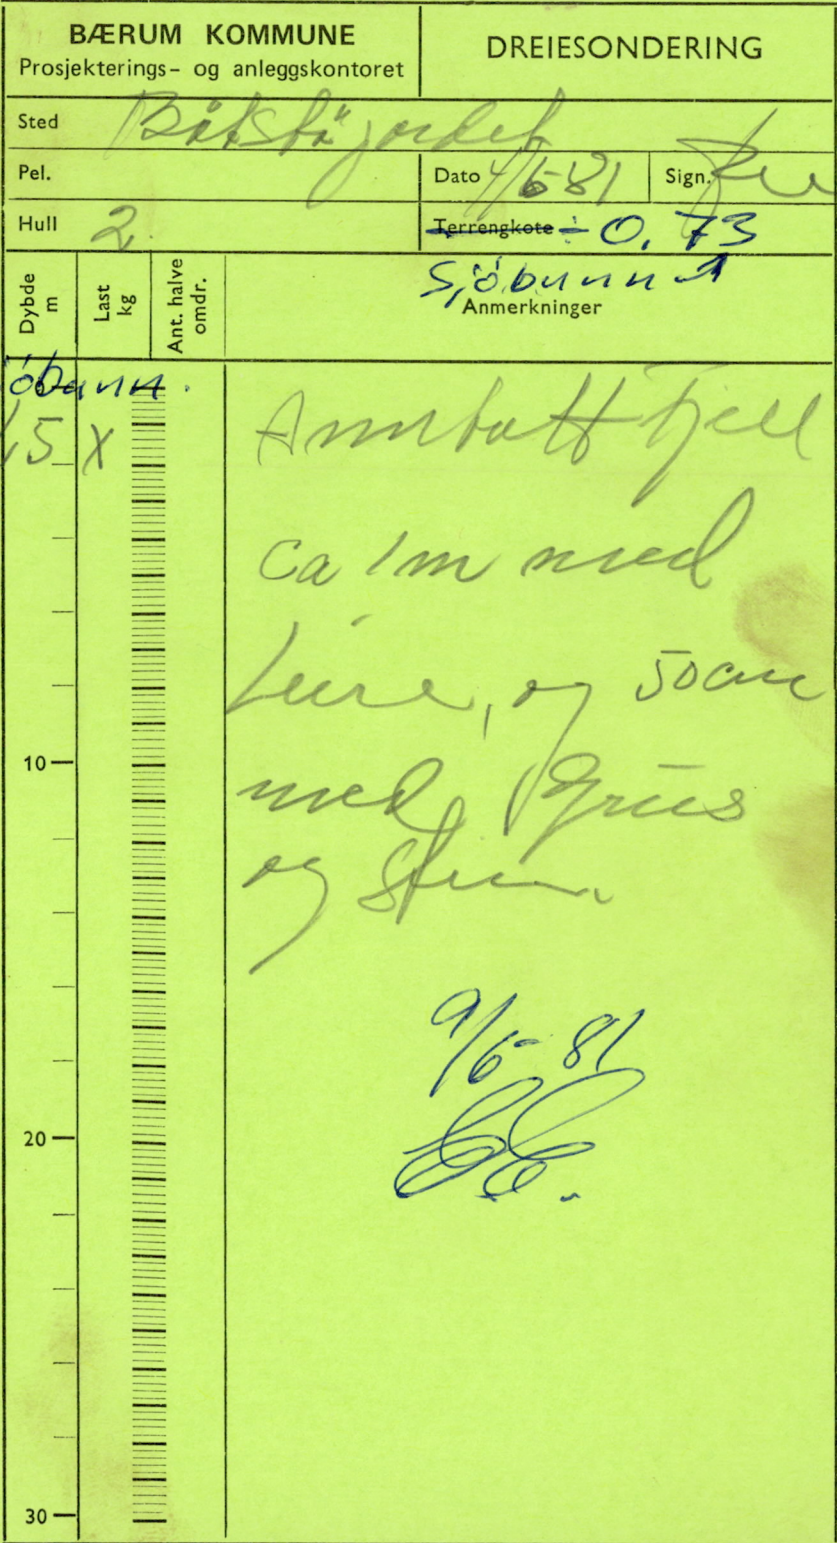 BÆRUM KOMMUNE
Prosjekterings- og anleggskontoret
DREIESONDERING
Sted Båtstøjordet
Pel.
Dato 4/6-81
Sign.
Hull 2
Terrengkote ÷ 0.73
Sjöbunn
Dybde m
Last kg
Ant. halve omdr.
Anmerkninger
öbunn.
1,5 X
Annbott fjell
ca 1m med
Leire, og 50cm
med Grus
og Stein.
10
9/6-81
20
30